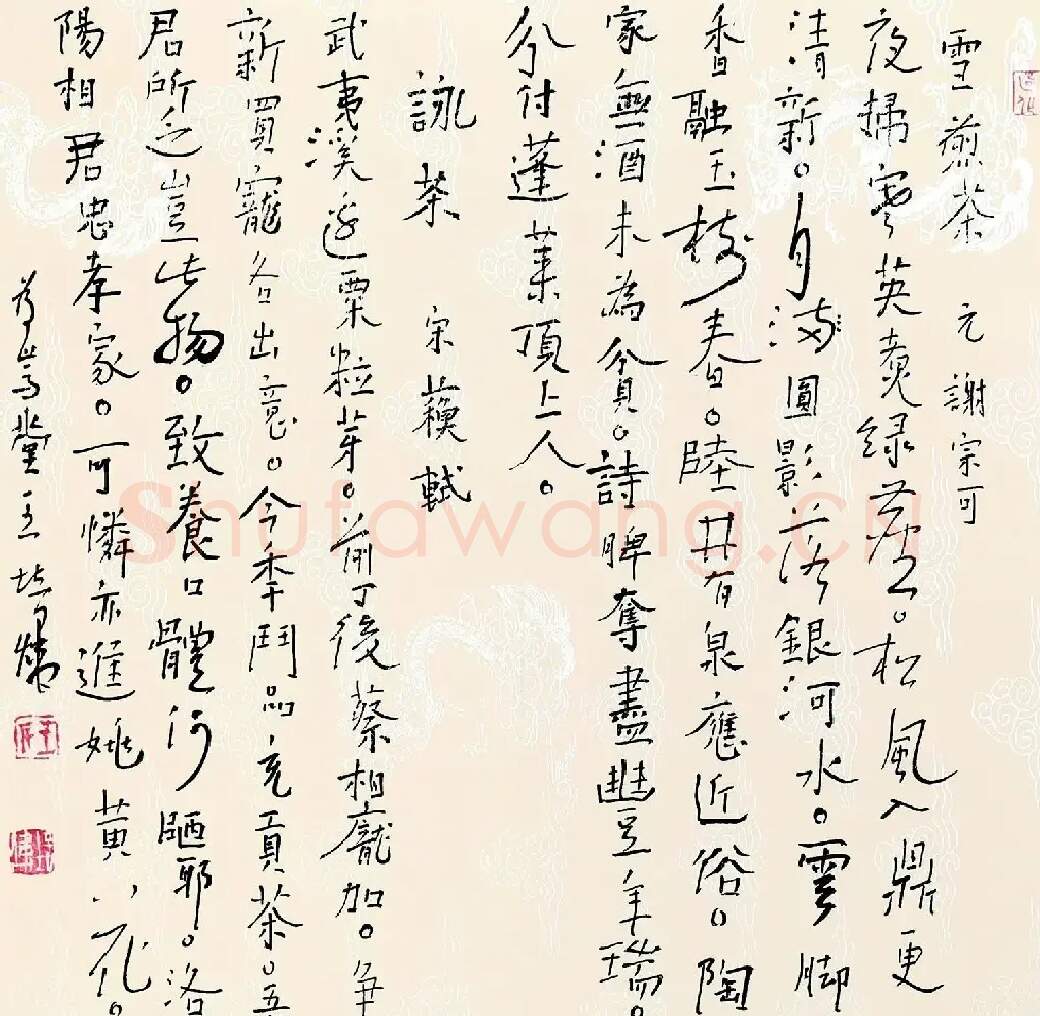 雪煎茶 元 謝宗可
夜掃寒英煮绿塵。松風入鼎更
清新。月滿圓影落銀河水。雲脚
香融玉樹春。陸井有泉應近俗。陶
家無酒未為貧。詩脾奪盡豐年瑞。
分付蓬萊頂上人。
詠茶 宋 蘇軾
武夷溪邊粟粒芽。前丁後蔡相寵加。爭
新買寵各出意。今年鬥品充貢茶。吾
君所乏豈此物。致養口體何陋耶。洛
陽相君忠孝家。可憐亦進姚黃花。
Shufawang.CN